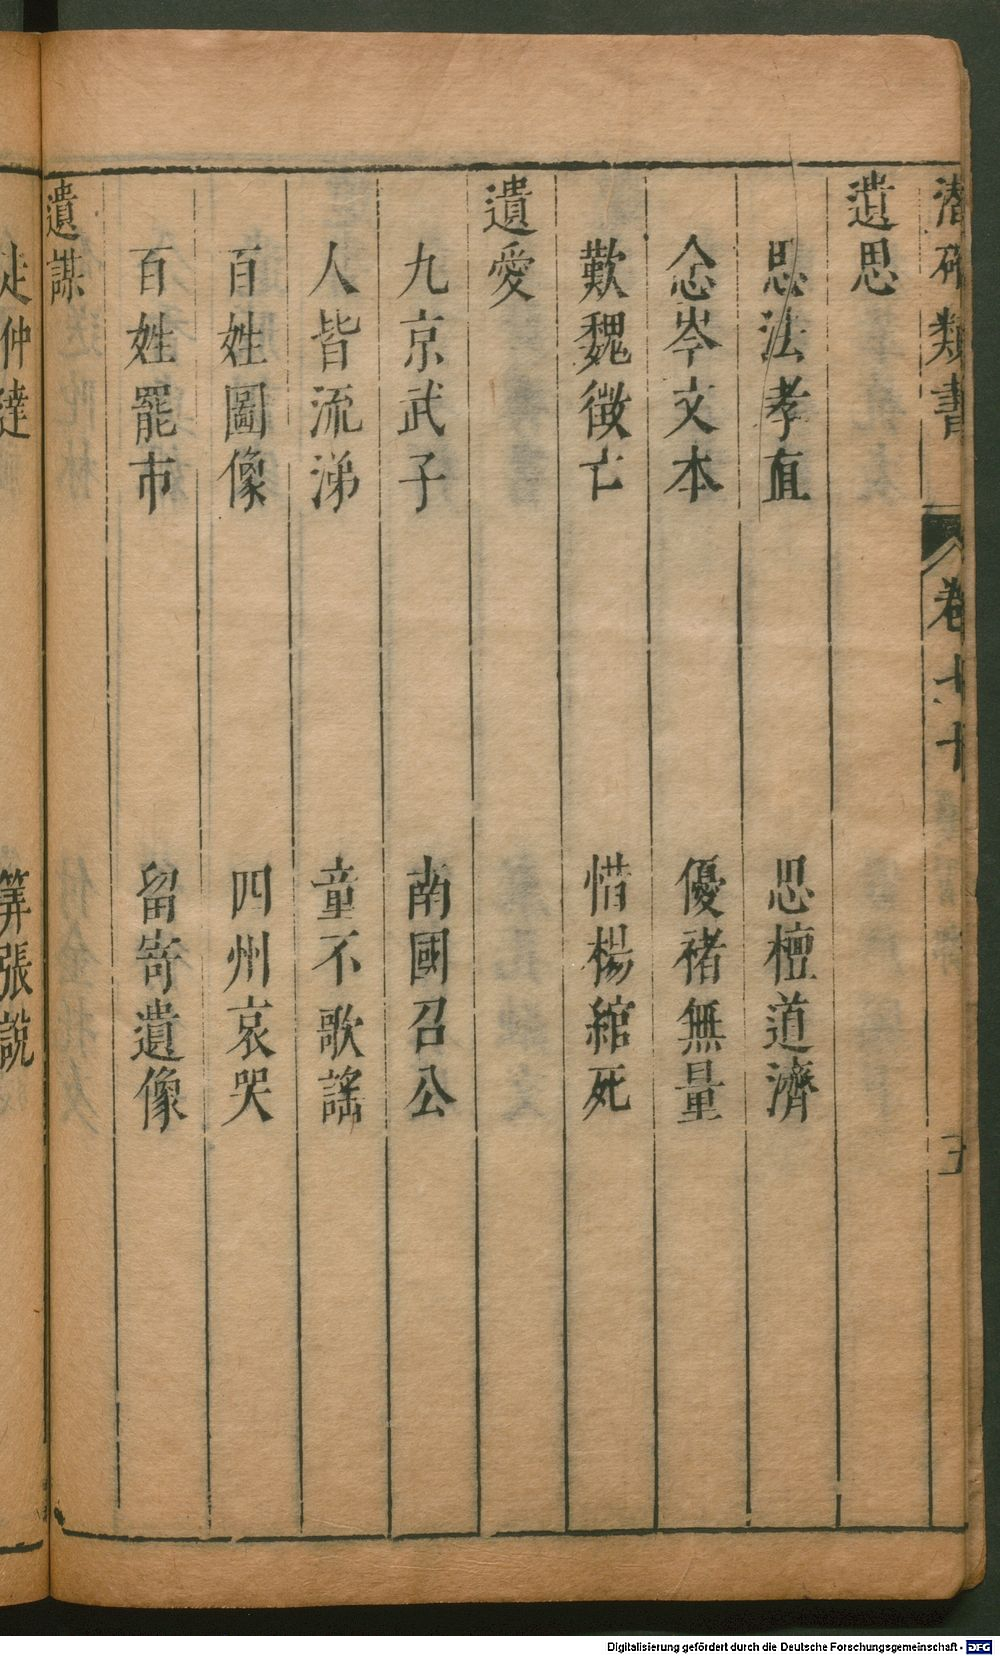 潛確類書 卷七十 五
遺思
思法孝直 思檀道濟
念岑文本 優褚無量
歎魏徵亡 惜楊綰死
遺愛
九京武子 南國召公
人皆流涕 童不歌謠
百姓圖像 四州哀哭
百姓罷市 留寄遺像
遺謀
走仲達 筭張說
Digitalisierung gefördert durch die Deutsche Forschungsgemeinschaft - DFG